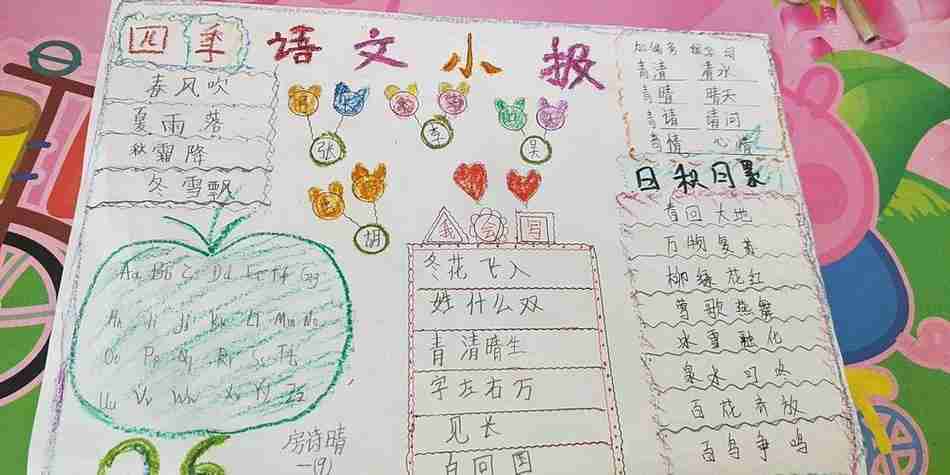 四季 语文小报
春风吹
夏雨落
秋霜降
冬雪飘
张
李
吴
胡
青清 清水
青晴 晴天
青请 请问
青情 心情
日积月累
春回大地
万物复苏
柳绿花红
莺歌燕舞
冰雪融化
泉水叮咚
百花齐放
百鸟争鸣
我会写
冬花飞入
姓什么双
青清晴生
字左右万
见长
百回国
Aa Bb Cc Dd Ee Ff Gg
Hh Ii Jj Kk Ll Mm Nn
Oo Pp Qq Rr Ss Tt
Uu Vv Ww Xx Yy Zz
26
房诗晴
一(9)